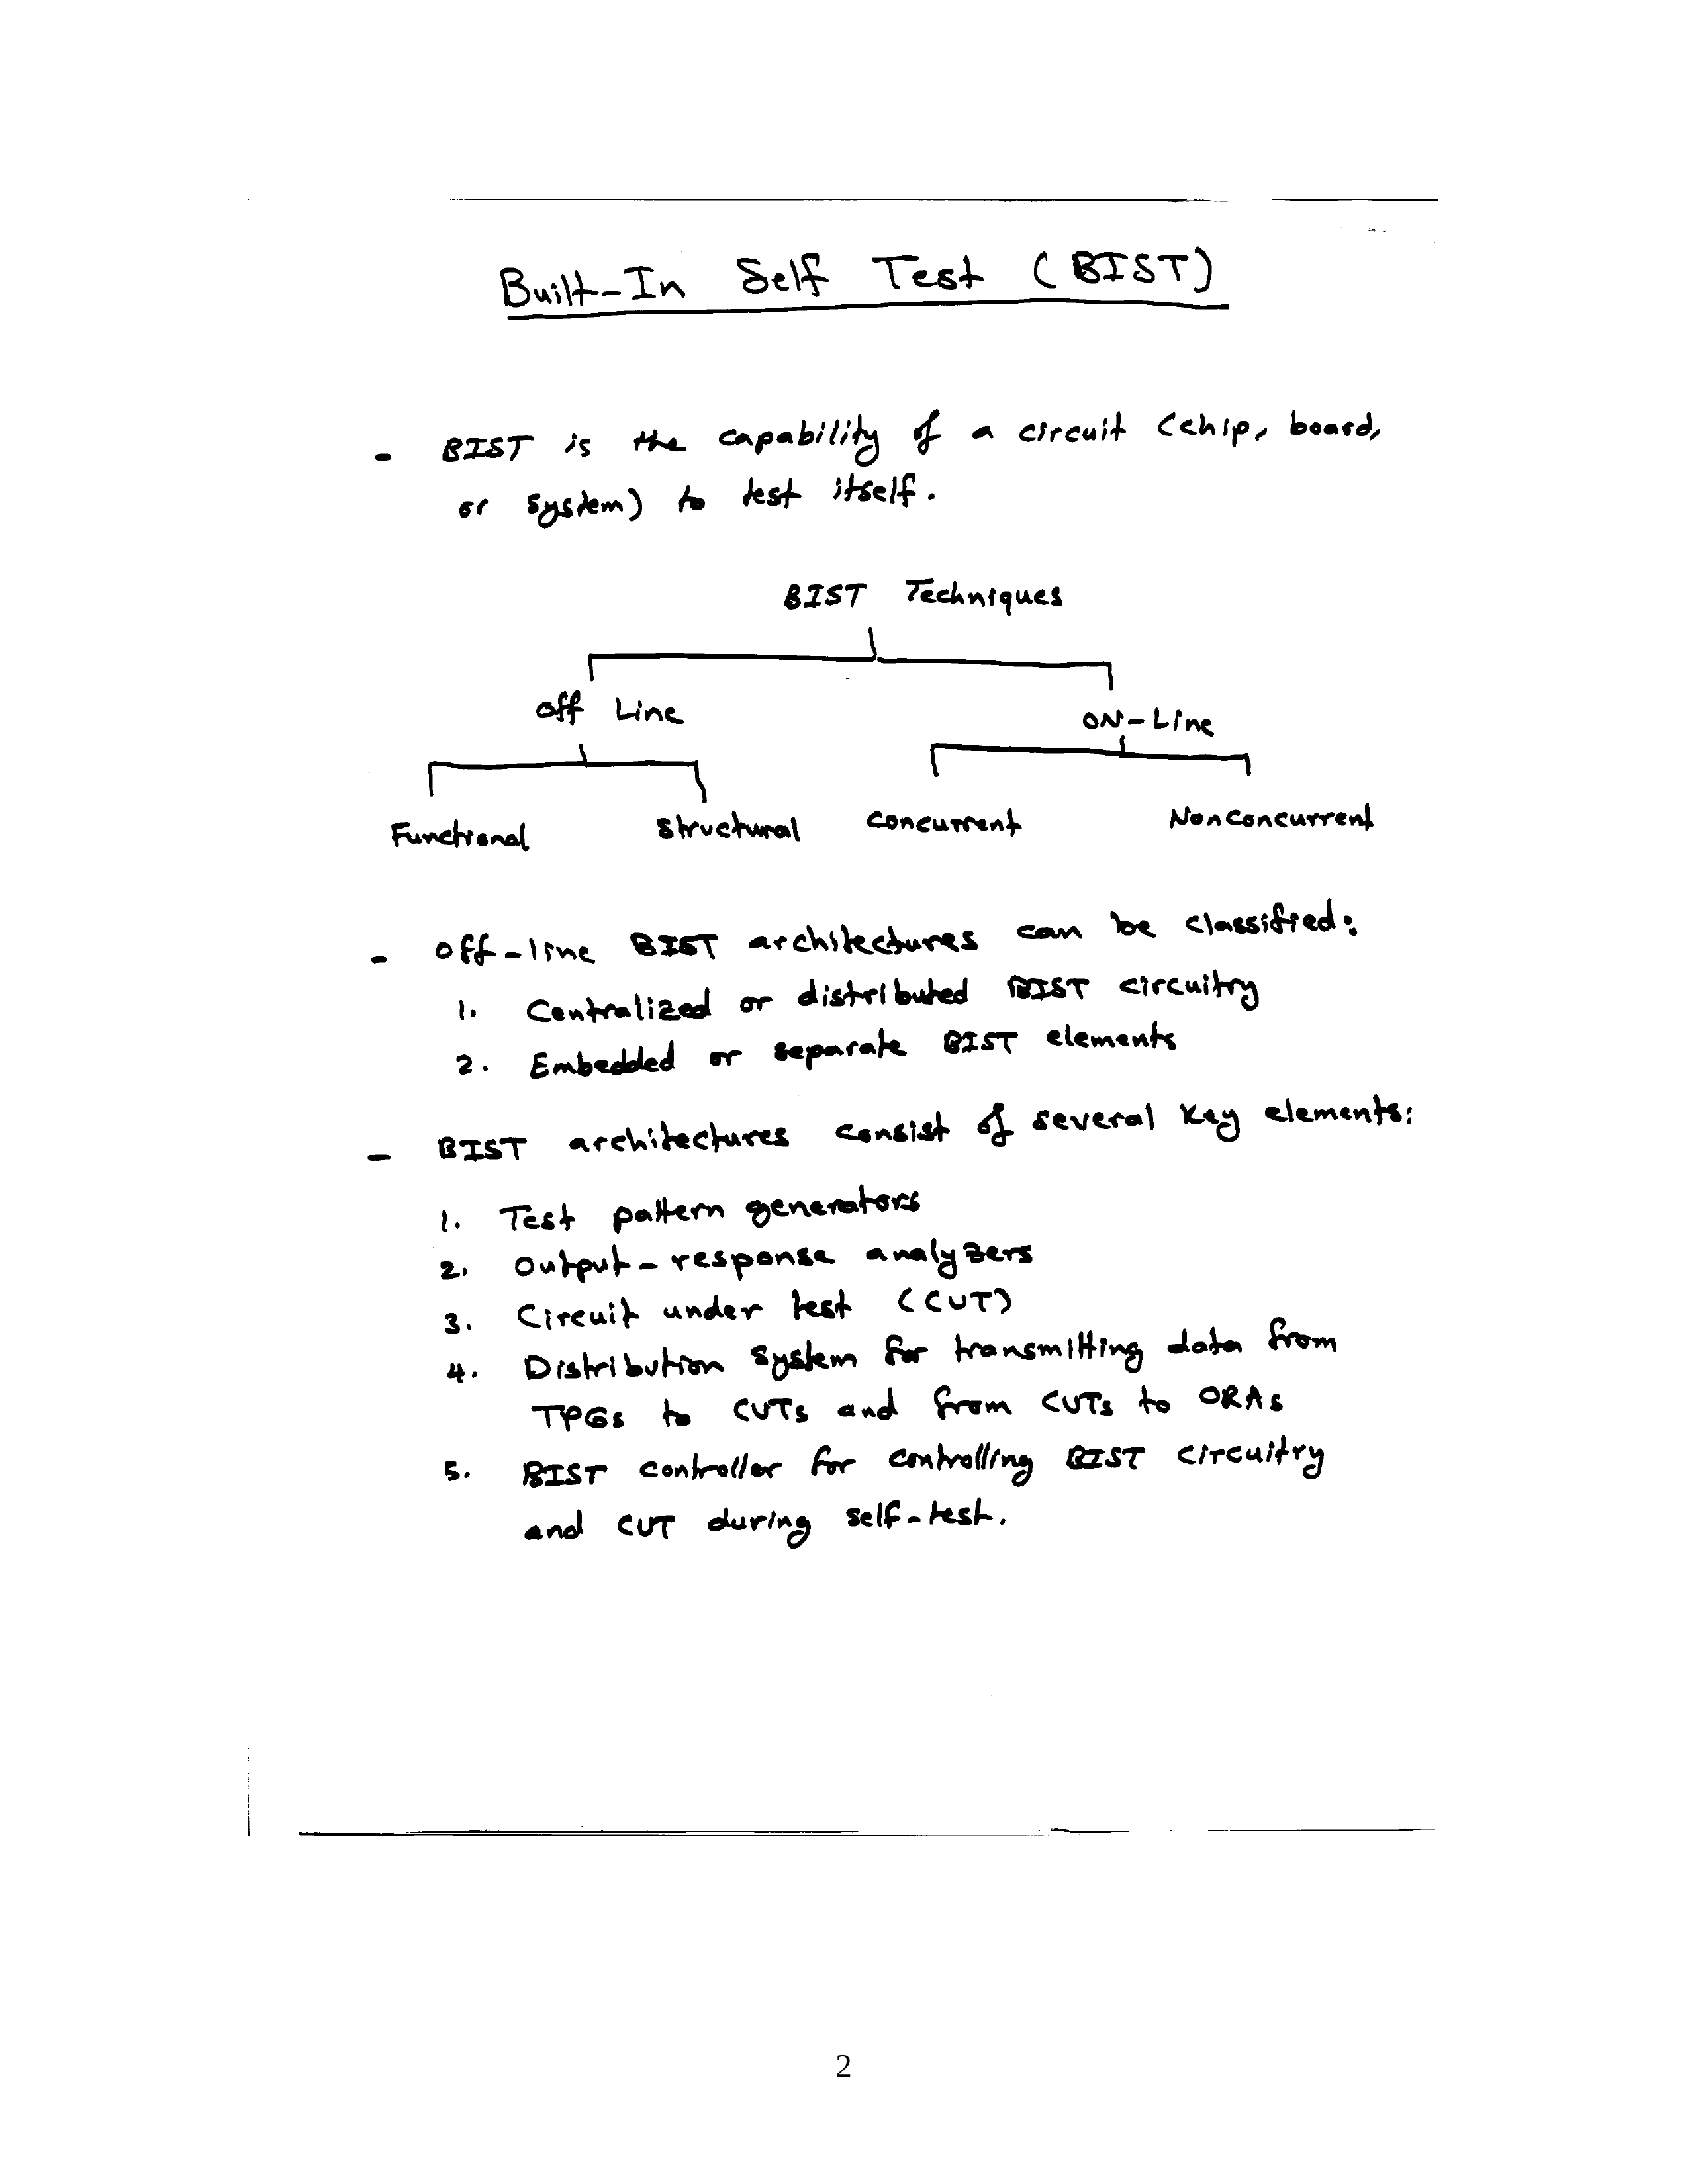 Built-In Self Test (BIST)
- BIST is the capability of a circuit (chip, board,
or system) to test itself.
BIST Techniques
Off Line
ON-Line
Functional
Structural
Concurrent
Nonconcurrent
- Off-line BIST architectures can be classified:
1. Centralized or distributed BIST circuitry
2. Embedded or separate BIST elements
- BIST architectures consist of several key elements:
1. Test pattern generators
2. Output-response analyzers
3. Circuit under test (CUT)
4. Distribution system for transmitting data from
TPGs to CUTs and from CUTs to ORAs
5. BIST controller for controlling BIST circuitry
and CUT during self-test.
2